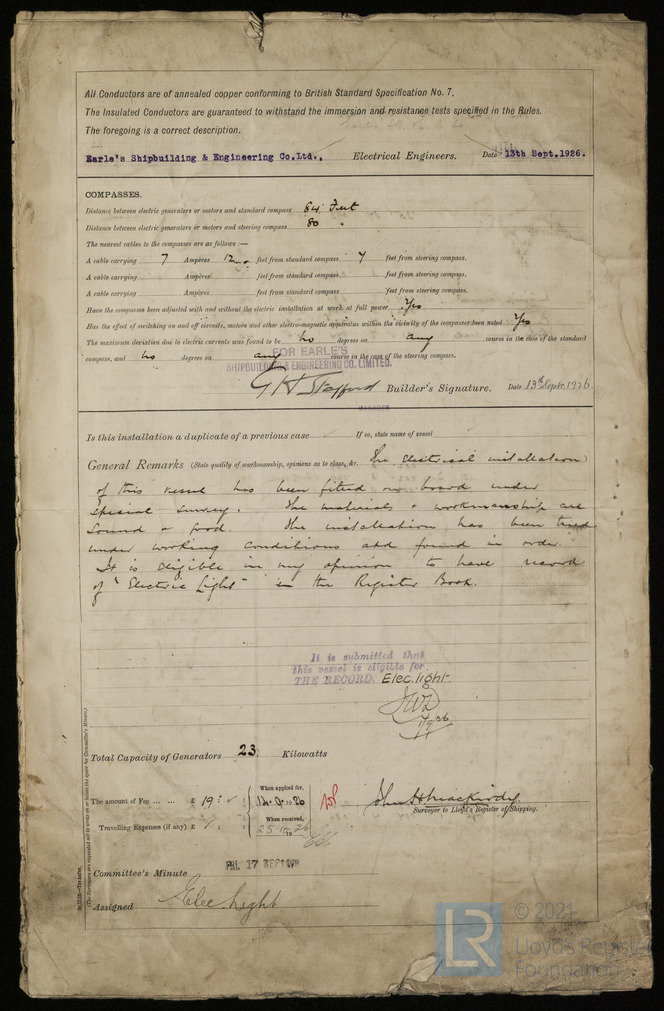 All Conductors are of annealed copper conforming to British Standard Specification No. 7.
The Insulated Conductors are guaranteed to withstand the immersion and resistance tests specified in the Rules.
The foregoing is a correct description.
Earle's Shipbuilding & Engineering Co.Ltd., Electrical Engineers. Date 13th Sept.1926.
COMPASSES.
Distance between electric generators or motors and standard compass 84 Feet
Distance between electric generators or motors and steering compass 80 "
The nearest cables to the compasses are as follows :—
A cable carrying 7 Ampères feet from standard compass 7 feet from steering compass.
A cable carrying Ampères feet from standard compass feet from steering compass.
A cable carrying Ampères feet from standard compass feet from steering compass.
Have the compasses been adjusted with and without the electric installation at work at full power Yes
Has the effect of switching on and off circuits, motors and other electro-magnetic apparatus within the vicinity of the compasses been noted Yes
The maximum deviation due to electric currents was found to be no degrees on any course in the case of the standard
compass, and no degrees on any course in the case of the steering compass.
FOR EARLE'S
SHIPBUILDING & ENGINEERING CO. LIMITED.
G H Stafford Builder's Signature. Date 13th Septr. 1926
MANAGER
Is this installation a duplicate of a previous case If so, state name of vessel
General Remarks (State quality of workmanship, opinions as to class, &c. The Electrical installation
of this vessel has been fitted on board under
special survey. The materials & workmanship are
sound & good. The installation has been tried
under working conditions and found in order.
It is eligible in my opinion to have record
of "Electric Light" in the Register Book.
It is submitted that
this vessel is eligible for
THE RECORD. Elec. light.
Total Capacity of Generators 23. Kilowatts
The amount of Fee ... ... £ 19 : When applied for, 14.9.1926
Travelling Expenses (if any) £ : : When received,
John H Mackirdy
Surveyor to Lloyd's Register of Shipping.
Committee's Minute FRI. 17 SEP 1926
Assigned Elec. Light
© 2021
Lloyd's Register
Foundation
LR